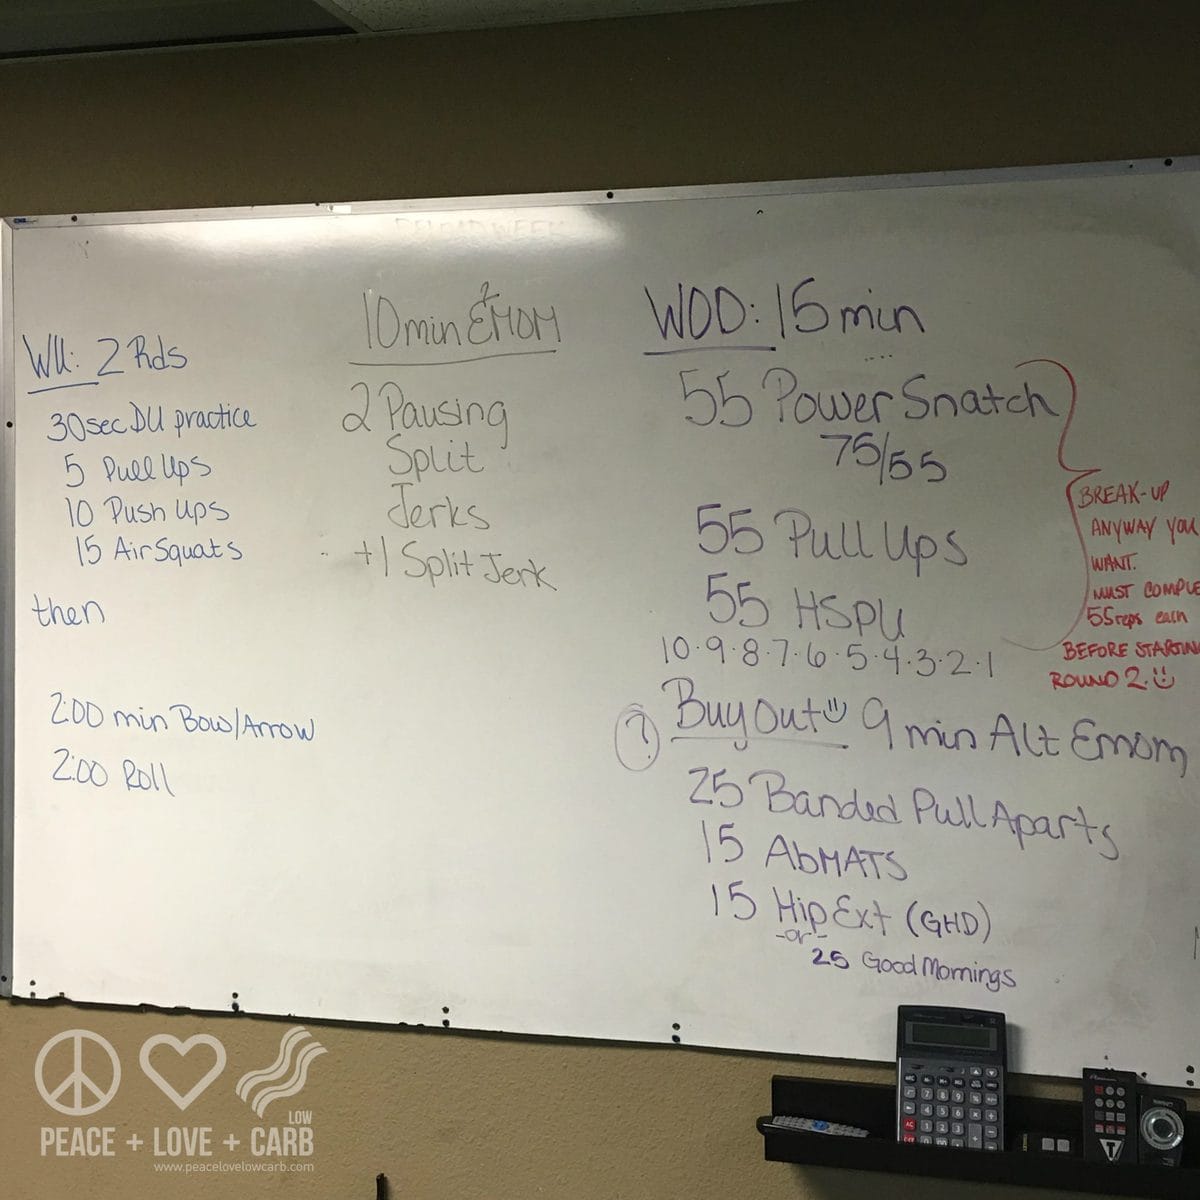 WU: 2 Rds
30sec DU practice
5 Pull Ups
10 Push Ups
15 Air Squats
then
2:00 min Bow/Arrow
2:00 Roll
10min EMOM
2 Pausing
Split
Jerks
+1 Split Jerk
WOD: 15 min
55 Power Snatch
75/55
55 Pull Ups
55 HSPU
10·9·8·7·6·5·4·3·2·1
BREAK-UP
ANYWAY YOU
WANT.
MUST COMPLE
55reps each
BEFORE STARTIN
ROUND 2.
? Buy Out 9 min Alt Emom
25 Banded Pull Aparts
15 AbMATS
15 Hip Ext (GHD)
-or-
25 Good Mornings
LOW
PEACE + LOVE + CARB
www.peacelovelowcarb.com